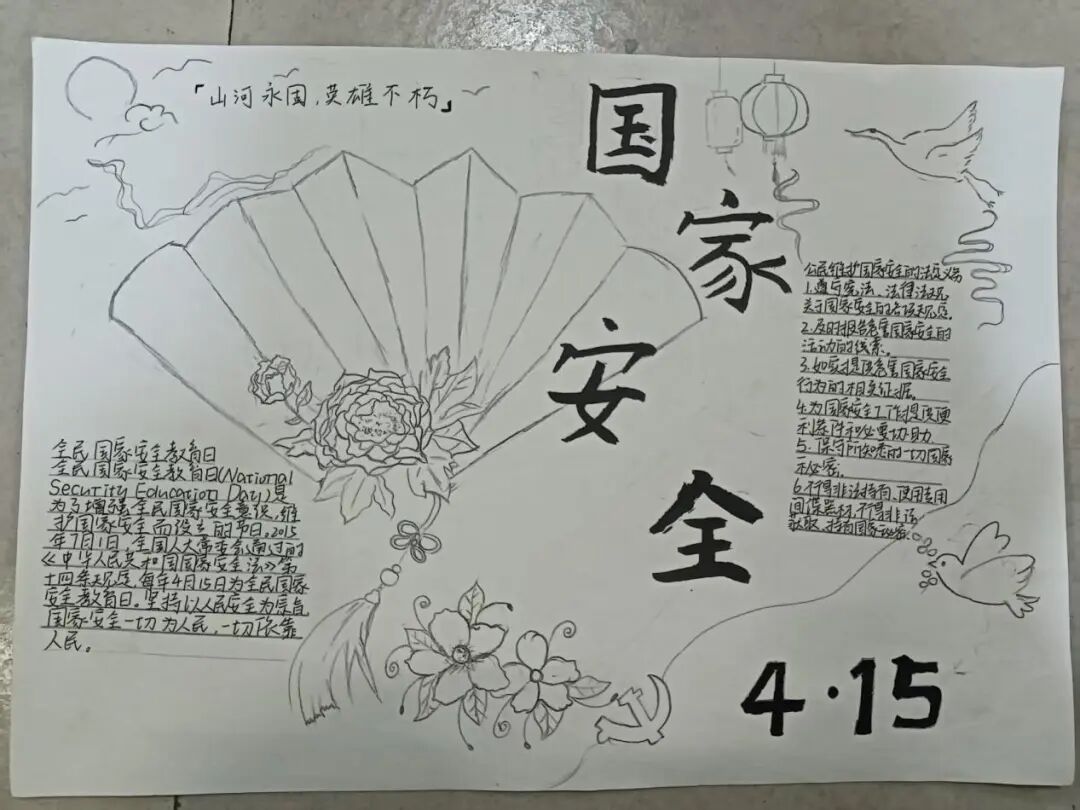 「山河永固,英雄不朽」
国家安全
全民国家安全教育日
全民国家安全教育日(National
Security Education Day)是
为了增强全民国家安全意识,维
护国家安全而设立的节日。2015
年7月1日,全国人大常委会通过的
《中华人民共和国国家安全法》第
十四条规定,每年4月15日为全民国家
安全教育日。坚持以人民安全为宗旨
国家安全一切为人民,一切依靠
人民。
公民维护国家安全的法定义务
1.遵守宪法、法律法规
关于国家安全的各项规定.
2.及时报告危害国家安全的
活动的线索。
3.如实提供危害国家安全
行为的相关证据。
4.为国家安全工作提供便
利条件和必要协助
5.保守所知悉的一切国家
秘密。
6.不得非法持有、使用专用
间谍器材,不得非法
获取、持有国家秘密.
4·15